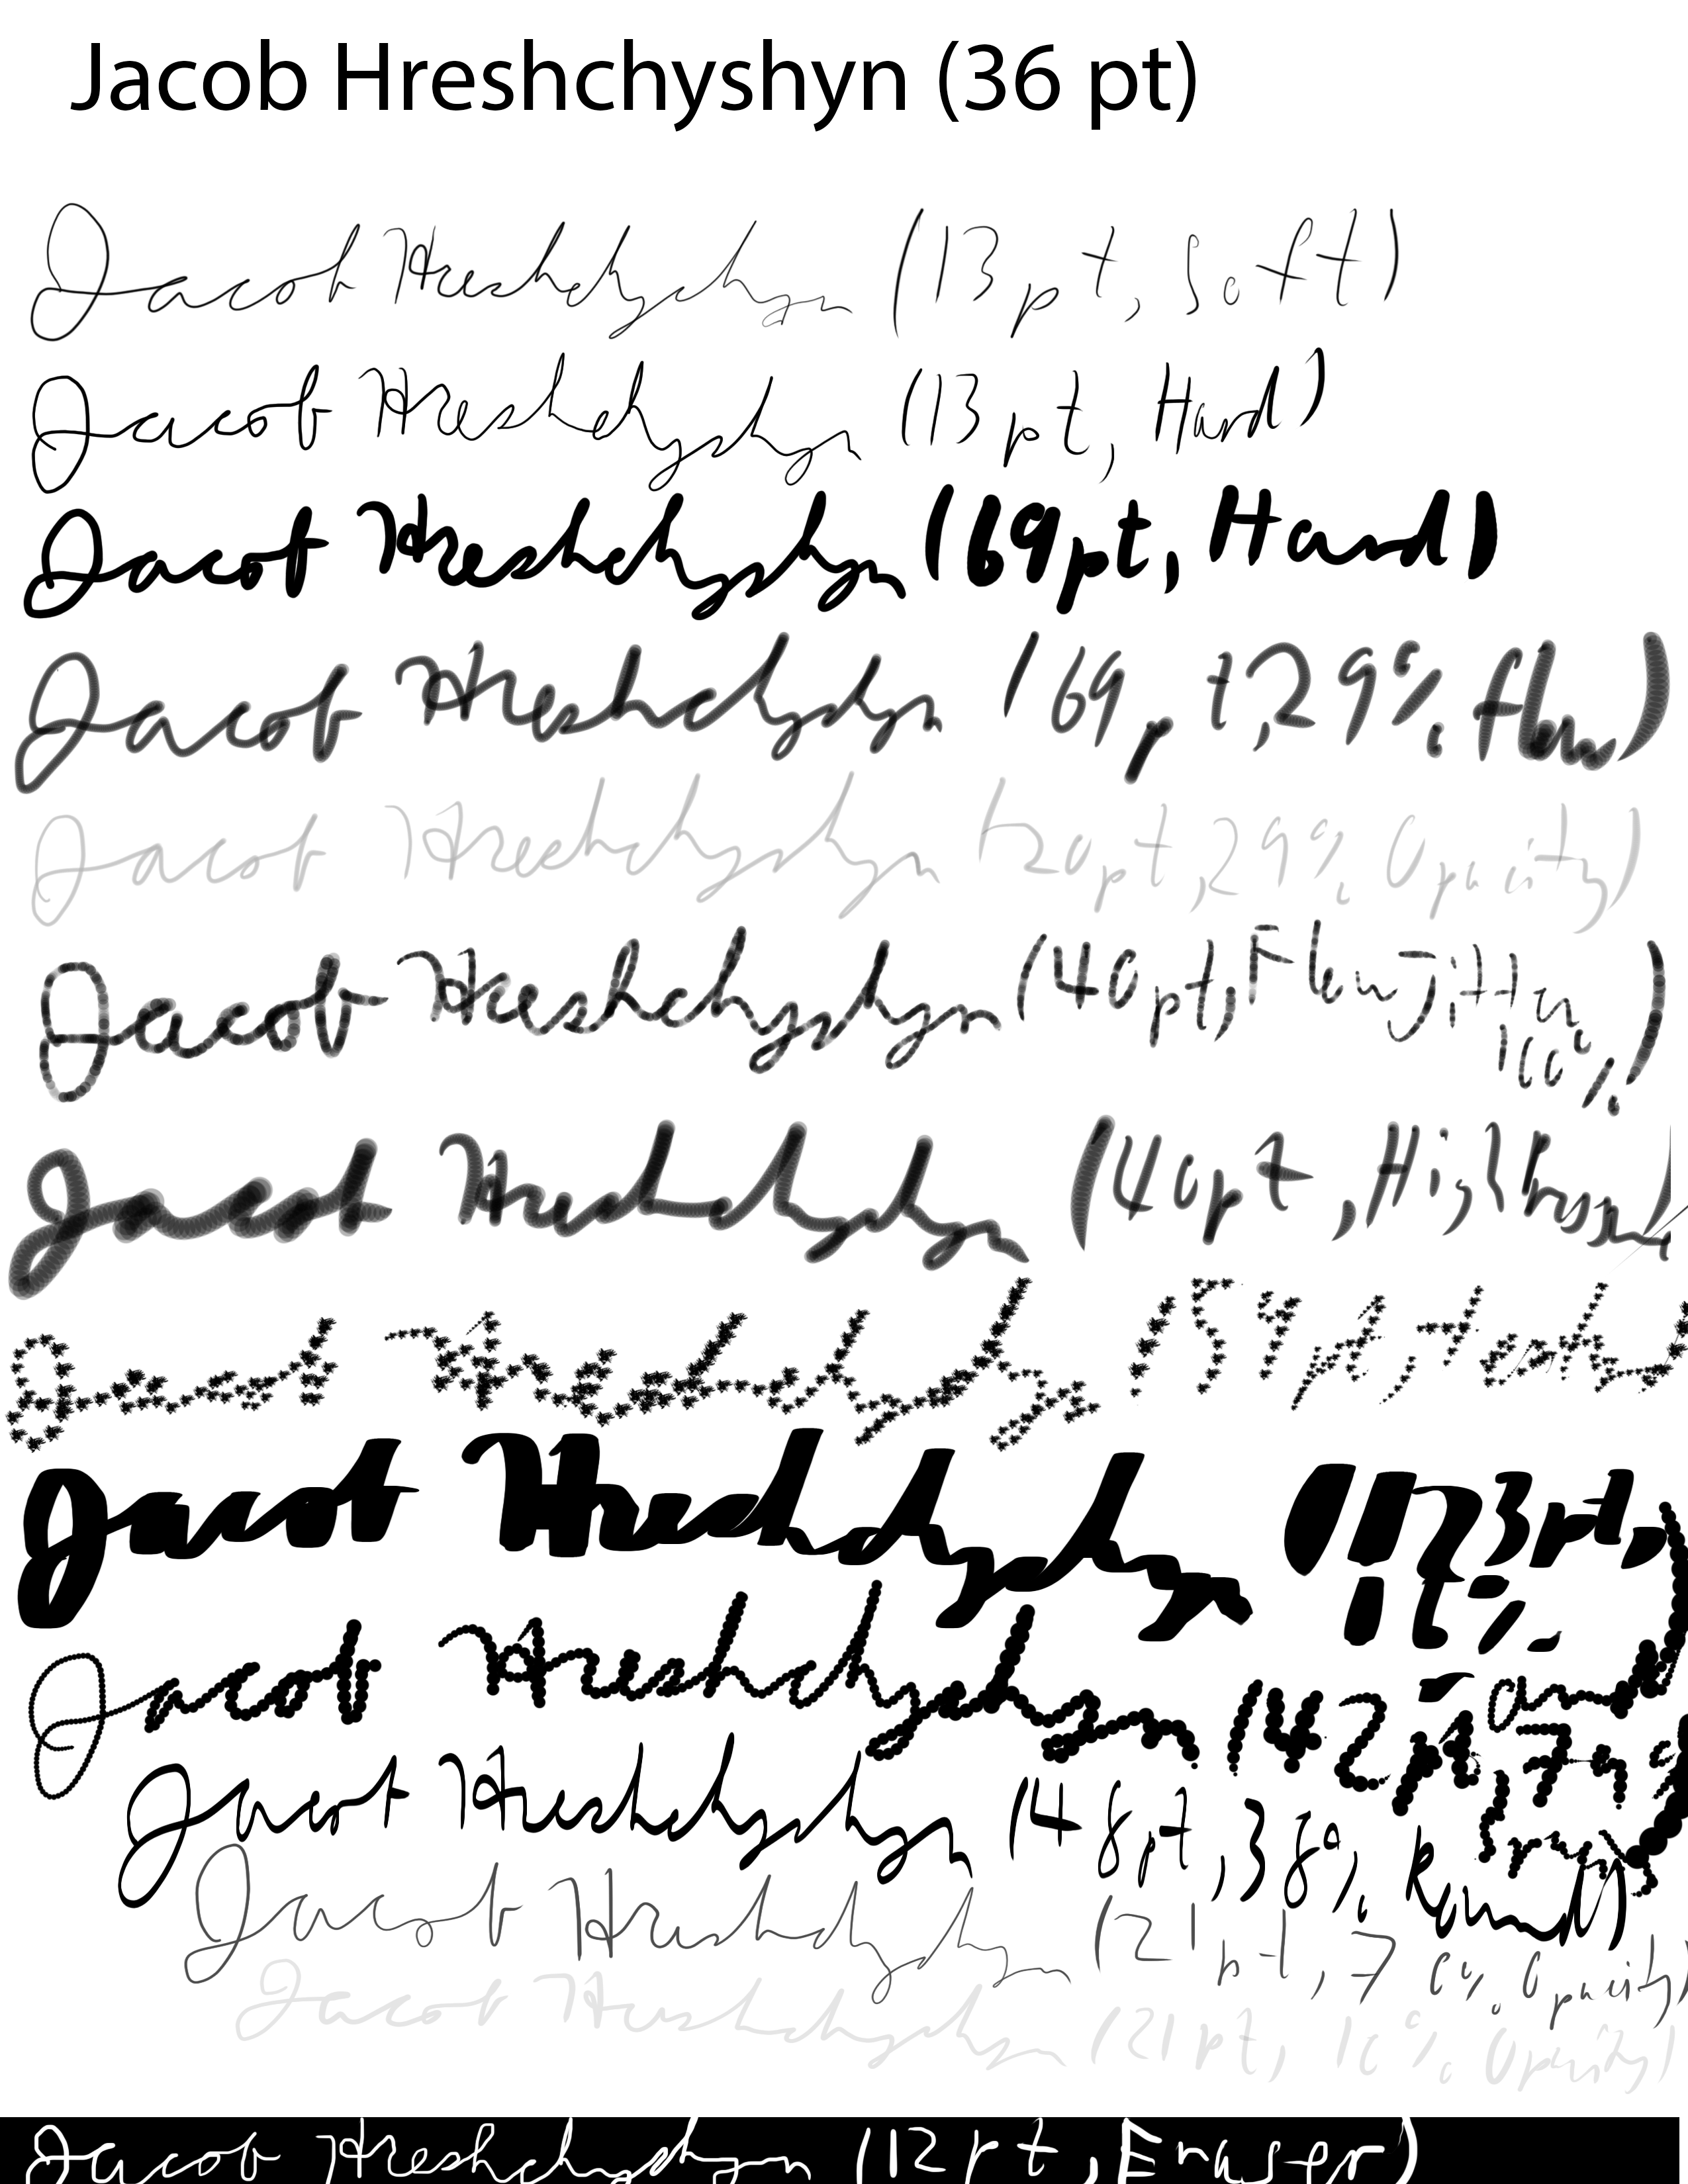 Jacob Hreshchyshyn (36 pt)
Jacob Hreshchyshyn (13 pt, Soft)
Jacob Hreshchyshyn (13 pt, Hard)
Jacob Hreshchyshyn (69pt, Hard)
Jacob Hreshchyshyn (69pt, 29% flow)
Jacob Hreshchyshyn (20pt, 29% Opacity)
Jacob Hreshchyshyn (40pt, Flow Jitter 100%)
Jacob Hreshchyshyn (40pt, High
Jacob Hreshchyshyn (59pt,
Jacob Hreshchyshyn (123pt, 16%
Jacob Hreshchyshyn (42pt,
Jacob Hreshchyshyn (48pt, 38% Round)
Jacob Hreshchyshyn (21pt, 70% Opacity)
Jacob Hreshchyshyn (21pt, 10% Opacity)
Jacob Hreshchyshyn (12pt, Eraser)